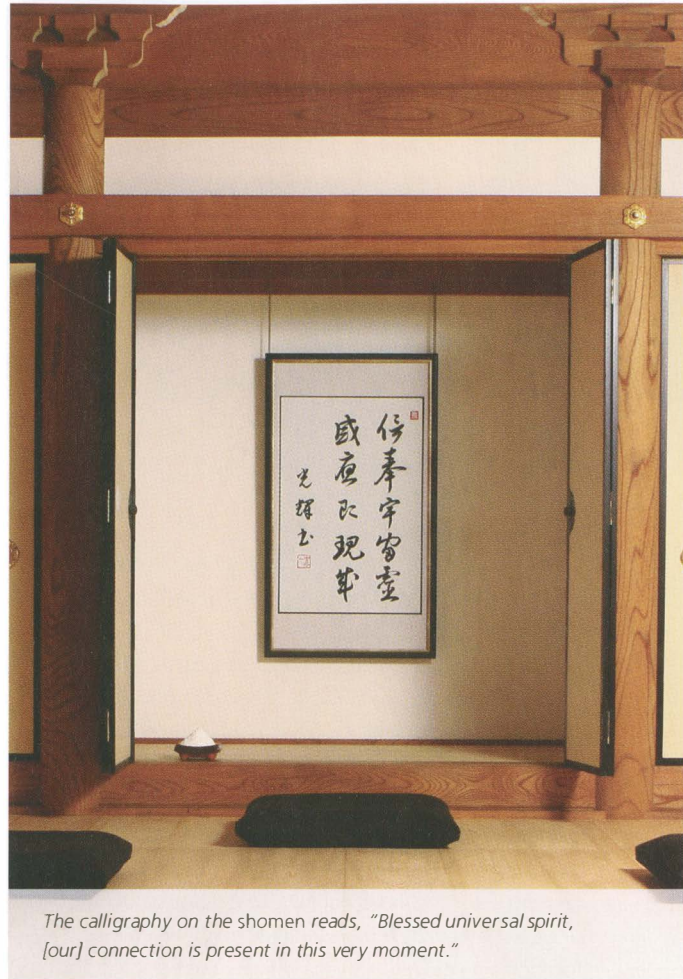 信奉宇宙霊
感應即現成
光輝書
The calligraphy on the shomen reads, “Blessed universal spirit,
[our] connection is present in this very moment.”